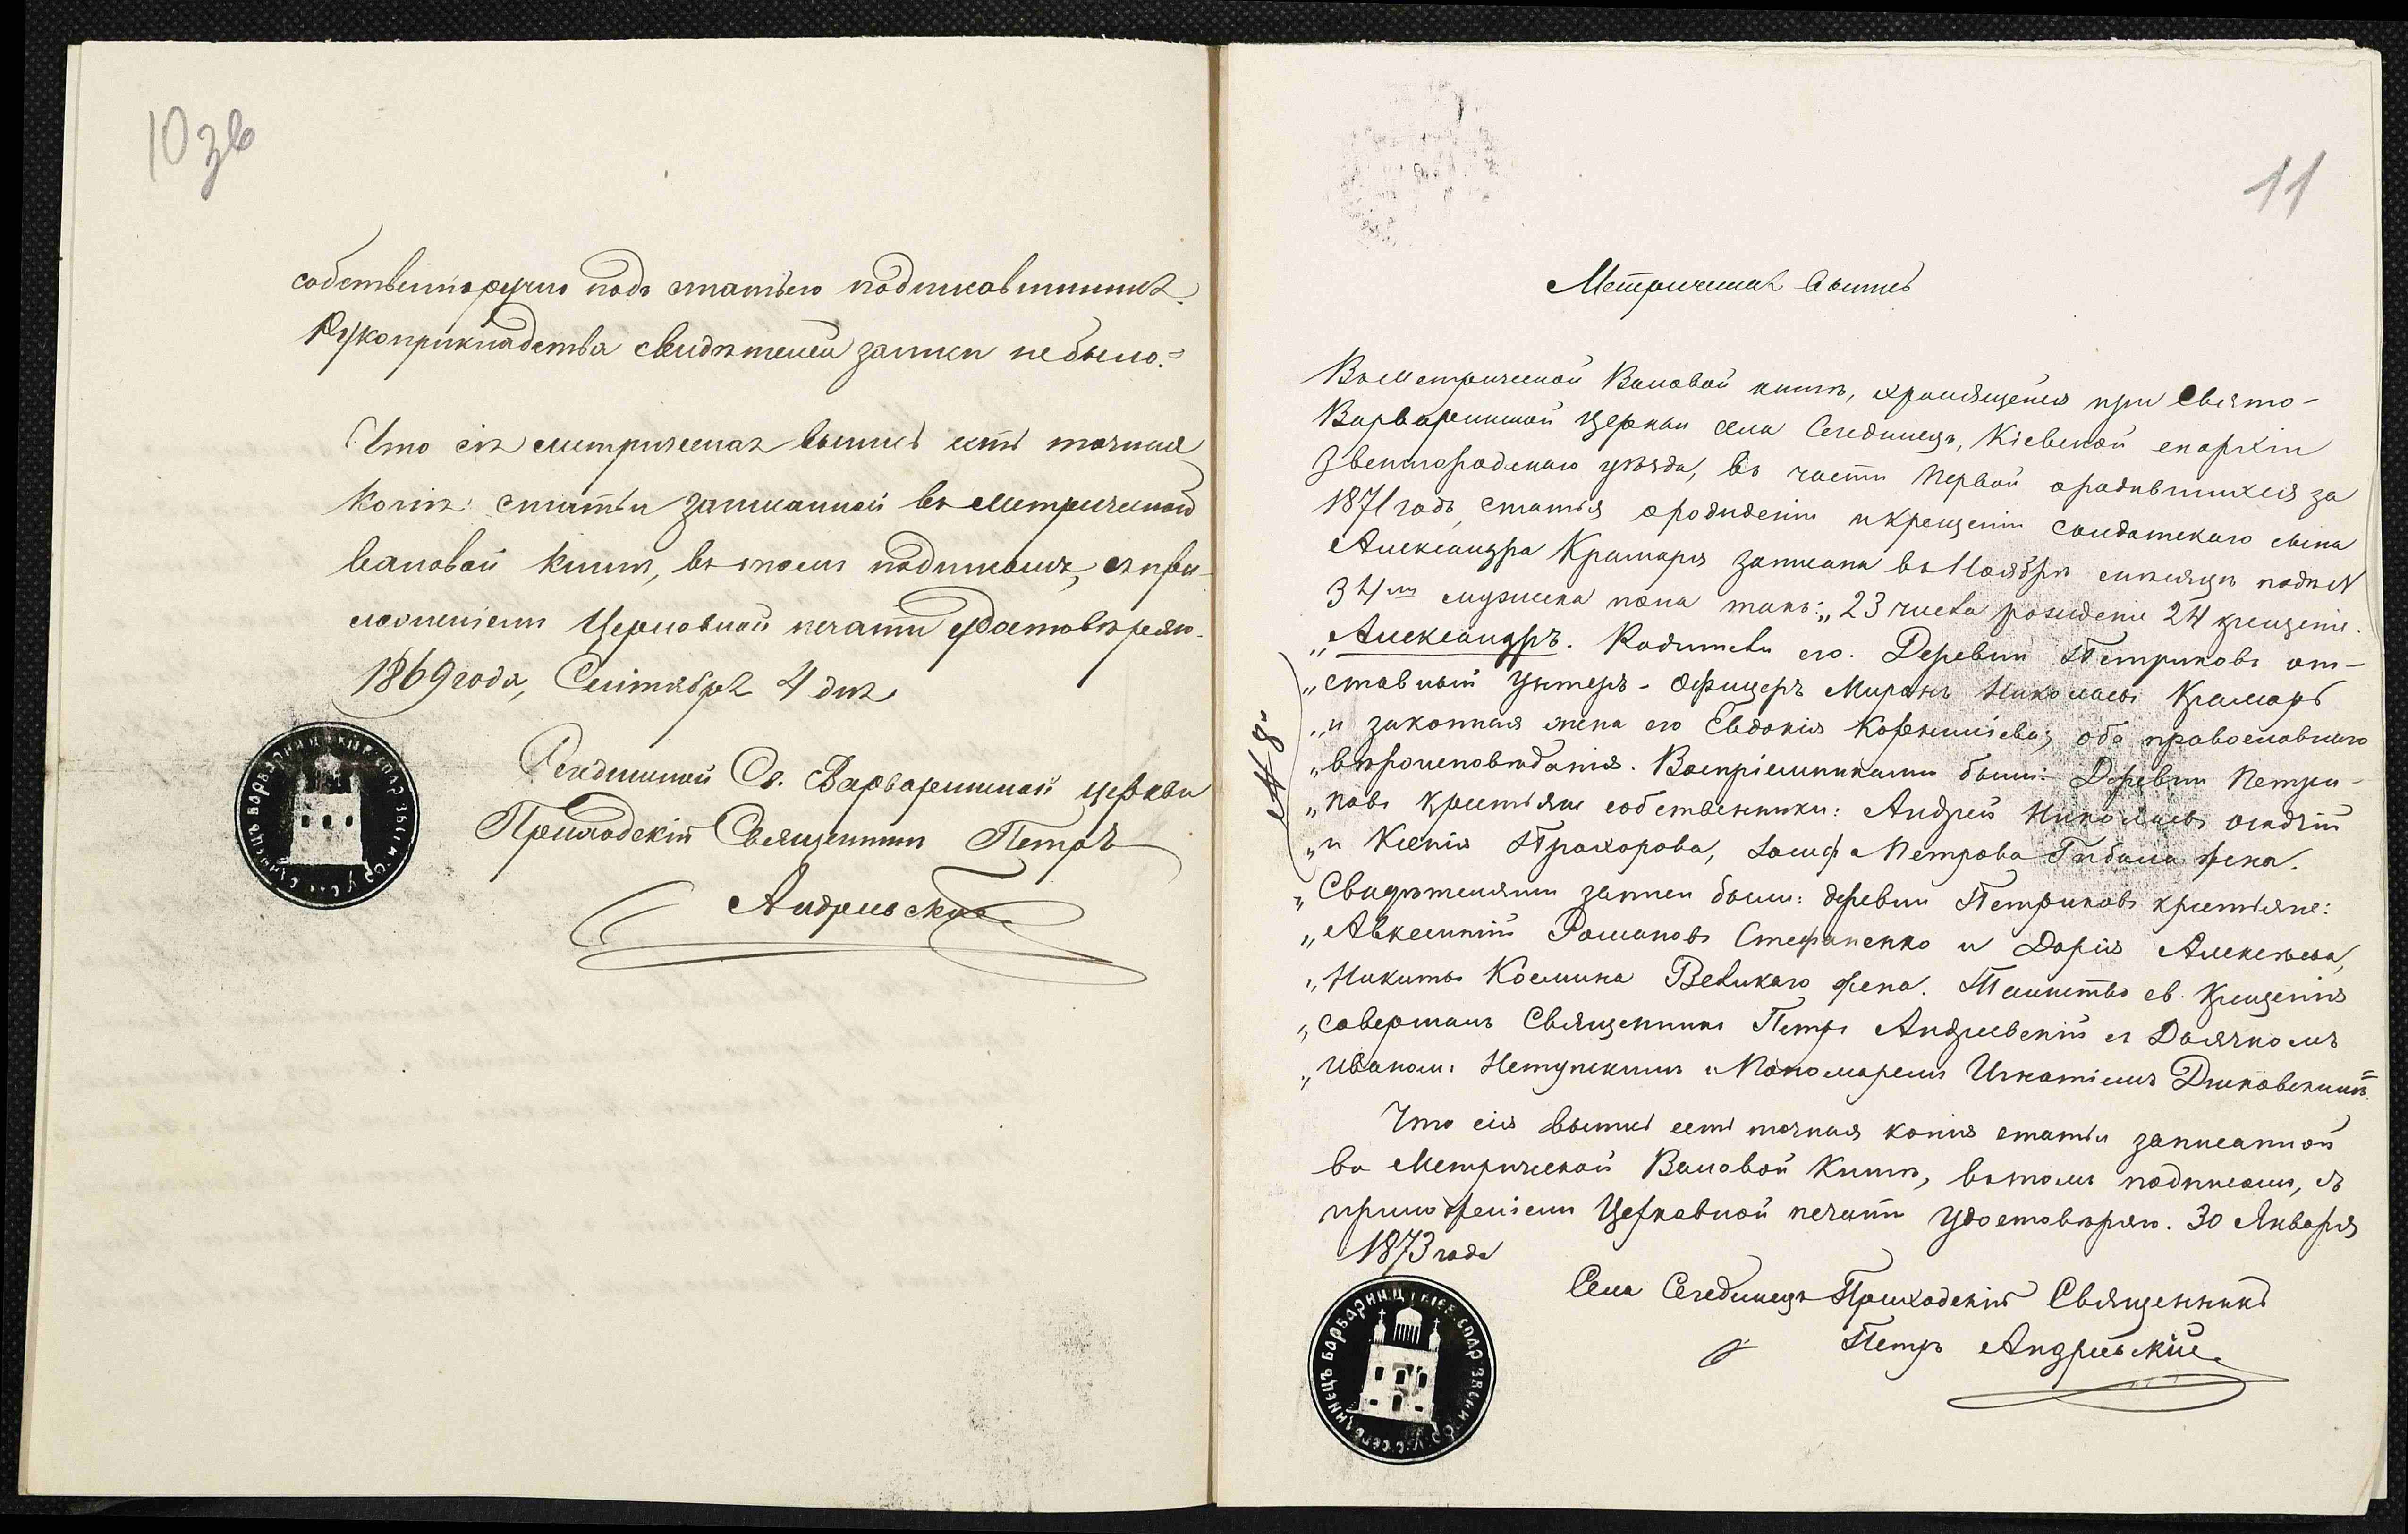 10 зв
собственноручно подъ статьею подписавшимися.
Рукоприкладства свидѣтелей записи не было.=
Что сія метрическая выпись есть точная
копія статьи записанной въ метрической
валовой книгѣ, въ томъ подписомъ, съ при-
ложеніемъ Церковной печати удостовѣряю.
1869 года, Сентября 4 дня
Св. Варваринской церкви
Приходскій Священникъ Петръ
Андріевскій
11
Метрическая выпись
Въ Метрической Валовой книгѣ, хранящейся при Свято-
Варваринской Церкви села Середицецъ, Кіевской епархіи
Звенигородскаго уѣзда, въ части Первой о родившихся за
1871 годъ, статья о рожденіи и крещеніи солдатскаго сына
Александра Крамаря записана въ Ноябрѣ мѣсяцѣ подъ N
34мъ мужеска пола такъ: „23 числа рожденіе 24 крещеніе.
„Александръ. Родители его: Деревни Петриковъ от-
„ставный Унтеръ-Офицеръ Миронъ Николаевъ Крамарь
„и законная жена его Евдокія Корниліева, оба православнаго
„вѣроисповѣданія. Воспріемниками были: Деревни Петри-
„ковъ крестьяне собственники: Андрей Николаевъ
„и Ксенія Прохорова, Іосифа Петрова жена.
„Свидѣтелями записи были: деревни Петриковъ крестьяне:
„Авксентій Романовъ Стефаненко и Дарія Алексѣева,
„Никиты Космина Великаго жена. Таинство св. Крещенія
„совершалъ Священникъ Петръ Андріевскій съ Дьячкомъ
„Иваномъ и Пономаремъ Игнатіемъ Дыковскимъ=
№ 8й
Что сія выпись есть точная копія статьи записанной
въ Метрической Валовой Книгѣ, въ томъ подписомъ, съ
приложеніемъ Церковной печати удостовѣряю. 30 Января
1873 года
Села Середицецъ Приходскій Священникъ
Петръ Андріевскій